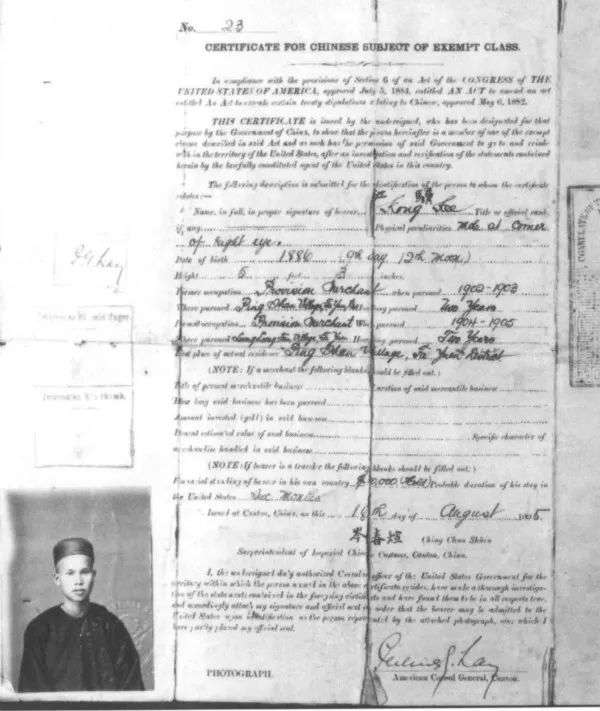 No. 23
CERTIFICATE FOR CHINESE SUBJECT OF EXEMPT CLASS.
In compliance with the provisions of Section 6 of an Act of the CONGRESS of THE
UNITED STATES OF AMERICA, approved July 5, 1884, entitled AN ACT to amend an act
entitled An Act to execute certain treaty stipulations relating to Chinese, approved May 6, 1882.
THIS CERTIFICATE is issued by the undersigned, who has been designated for that
purpose by the Government of China, to show that the person hereinafter is a member of one of the exempt
classes described in said Act and as such has the permission of said Government to go to and reside
within the territory of the United States, after an investigation and verification of the statements contained
herein by the lawfully constituted agent of the United States in this country.
The following description is submitted for the identification of the person to whom the certificate
relates:—
Name, in full, in proper signature of bearer, Kong Lee Title or official rank,
if any, Physical peculiarities Mole at Corner
of Right eye.
Date of birth 1886 (9th day, 12th Moon)
Height 5 feet 3 inches.
Former occupation Provision Merchant when pursued 1902-1903
Where pursued Ping Village, pursued Two Years
Present occupation Provision Merchant pursued 1904-1905
Where pursued Village, pursued Two Years
Last place of actual residence Ping Village, District
(NOTE: If a merchant the following blanks should be filled out:)
Title of present mercantile business Duration of said mercantile business
How long said business has been pursued
Amount invested (gold) in said business
Present estimated value of said business Specific character of
merchandise handled in said business
(NOTE: If bearer is a traveler the following blanks should be filled out:)
Financial standing of bearer in his own country Probable duration of his stay in
the United States Six Months
Issued at Canton, China, on this 18th day of August 1905
岑春煊
Superintendent of Imperial Chinese Customs, Canton, China.
I, the undersigned duly authorized Consular officer of the United States Government for the
territory within which the person named in the above certificate resides, have made a thorough investiga-
tion of the statements contained in the foregoing certificate and have found them to be in all respects true,
and accordingly attach my signature and official seal in order that the bearer may be admitted to the
United States upon identification as the person represented by the attached photograph, over which I
have partly placed my official seal.
Julius G. Lay
American Consul General, Canton.
PHOTOGRAPH.
J G Lay
CONSULATE